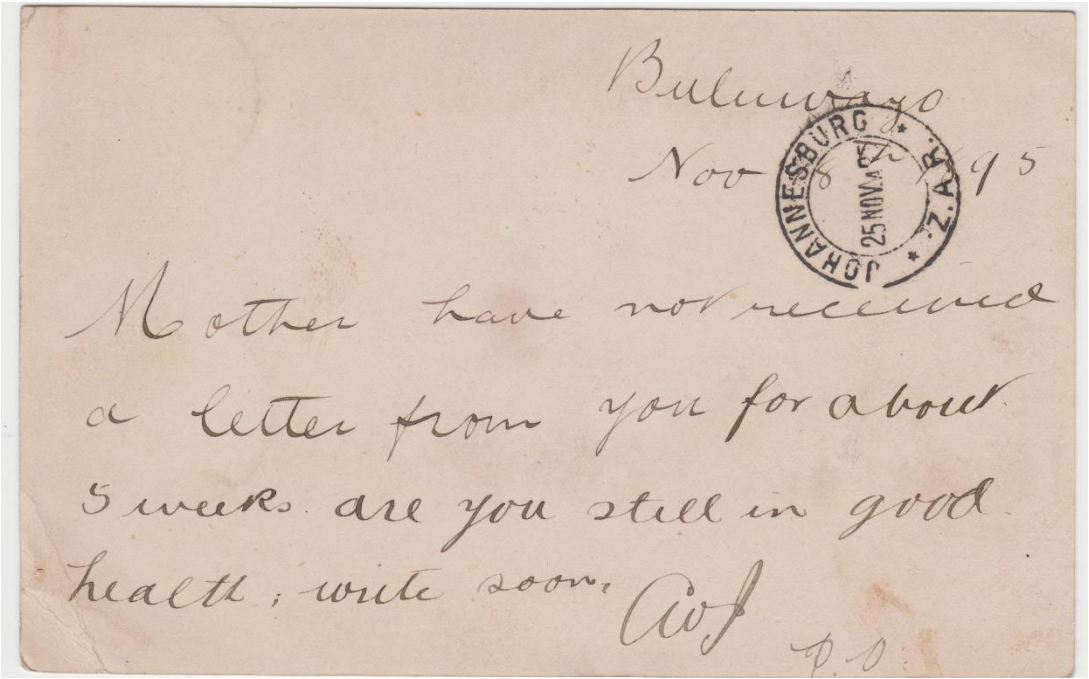 Buluwayo
Nov 8th 1895
JOHANNESBURG * Z.A.R. *
25 NOV 95
Mother have not received
a letter from you for about
5 weeks. are you still in good
health; write soon,
AWJ